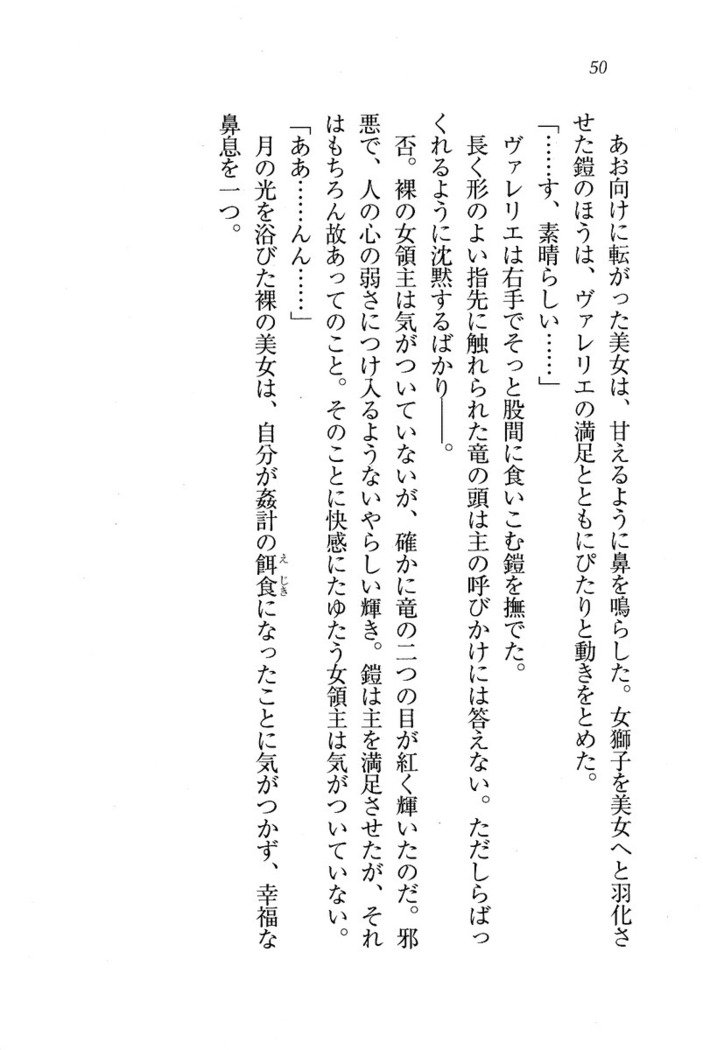 50
あお向けに転がった美女は、甘えるように鼻を鳴らした。女獅子を美女へと羽化さ
せた鎧のほうは、ヴァレリエの満足とともにぴたりと動きをとめた。
「……す、素晴らしい……」
ヴァレリエは右手でそっと股間に食いこむ鎧を撫でた。
長く形のよい指先に触れられた竜の頭は主の呼びかけには答えない。ただしらばっ
くれるように沈黙するばかり――。
否。裸の女領主は気がついていないが、確かに竜の二つの目が紅く輝いたのだ。邪
悪で、人の心の弱さにつけ入るようないやらしい輝き。鎧は主を満足させたが、それ
はもちろん故あってのこと。そのことに快感にたゆたう女領主は気がついていない。
「ああ……んん……」
月の光を浴びた裸の美女は、自分が姦計の餌食えじきになったことに気がつかず、幸福な
鼻息を一つ。